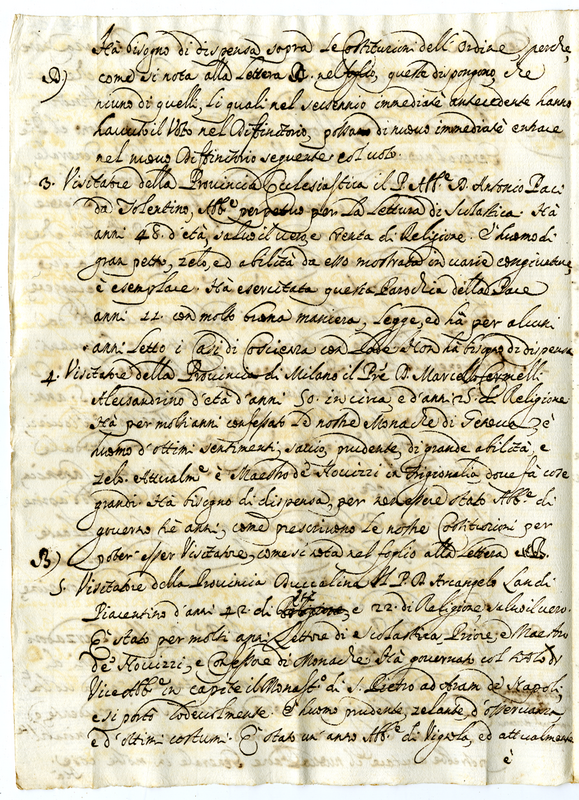 Hà bisogno di dispensa sopra le Costitutioni dell'Ordine, perche,
A) come si nota alla lettera A. nel foglio, queste dispongono, che
niuno di quelli, li quali nel sessennio immediatè antecedente hanno
havuto il Voto nel Diffinitorio, possano di nuovo immediatè entrare
nel nuovo Diffinitorio seguente col voto.
3. Visitatore della Provincia Ecclesiastica il P. Abb.e D. Antonio Paci
da Tolentino, Abb.e perpetuo per la Lettura di Scolastica. Hà
anni 48. d'età, salvo il vero, e trenta di Religione. È huomo di
gran petto, zelo, ed abilità da esso mostrata in varie congiunture,
è esemplare. Hà esercitata questa Parochia della Pace
anni 11. con molto buona maniera, legge, ed hà per alcuni
anni letto i Casi di Coscienza con lode. Non hà bisogno di dispensa
4. Visitatore della Provincia di Milano il P.re D. Marcello
Alessandrino d'età d'anni 50. in circa, ed anni 25. di Religione
Hà per molti anni confessato le nostre Monache di Genova, è
huomo d'ottimi sentimenti, savio, prudente, di grande abilità, e
zelo. Attualm.e è Maestro de Novizzi in dove fà cose
grandi. Hà bisogno di dispensa, per non essere stato Abb.e di
governo trè anni, come prescrivono le nostre Costitutioni per
B) poter esser Visitatore, come si nota nel foglio alla lettera B.
5. Visitatore della Provincia il P. D. Arcangelo Landi
Piacentino d'anni 42. di età, e 22. di Religione, salvo il vero.
È stato per molti anni Lettore di Scolastica, Priore, e Maestro
de' Novizzi, e Confessore di Monache. Hà governato col titolo di
Vice Abb.e in capite il Monast.o di S. Pietro ad Aram de Napoli,
e si portò lodevolmente. È huomo prudente, zelante d'osservanza,
e d'ottimi costumi. È stato un' anno Abb.e di Vignola, ed attualmente
è